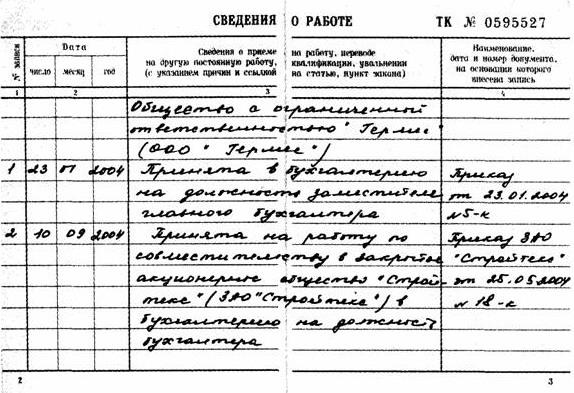 СВЕДЕНИЯ О РАБОТЕ ТК № 0595527
№ записи
Дата
число месяц год
Сведения о приеме на работу, переводе
на другую постоянную работу, квалификации, увольнении
(с указанием причин и ссылкой на статью, пункт закона)
Наименование,
дата и номер документа,
на основании которого
внесена запись
1 2 3 4
Общество с ограниченной
ответственностью "Гермес"
(ООО "Гермес")
1 23 01 2004 Принята в бухгалтерию Приказ
на должность заместителя от 23.01.2004
главного бухгалтера №5-к
2 10 09 2004 Принята на работу по Приказ ЗАО
совместительству в закрытое "Стройтекс"
акционерное общество "Строй- от 25.05.2004
текс" (ЗАО "Стройтекс") в № 18-к
бухгалтерию на должность
бухгалтера
2 3